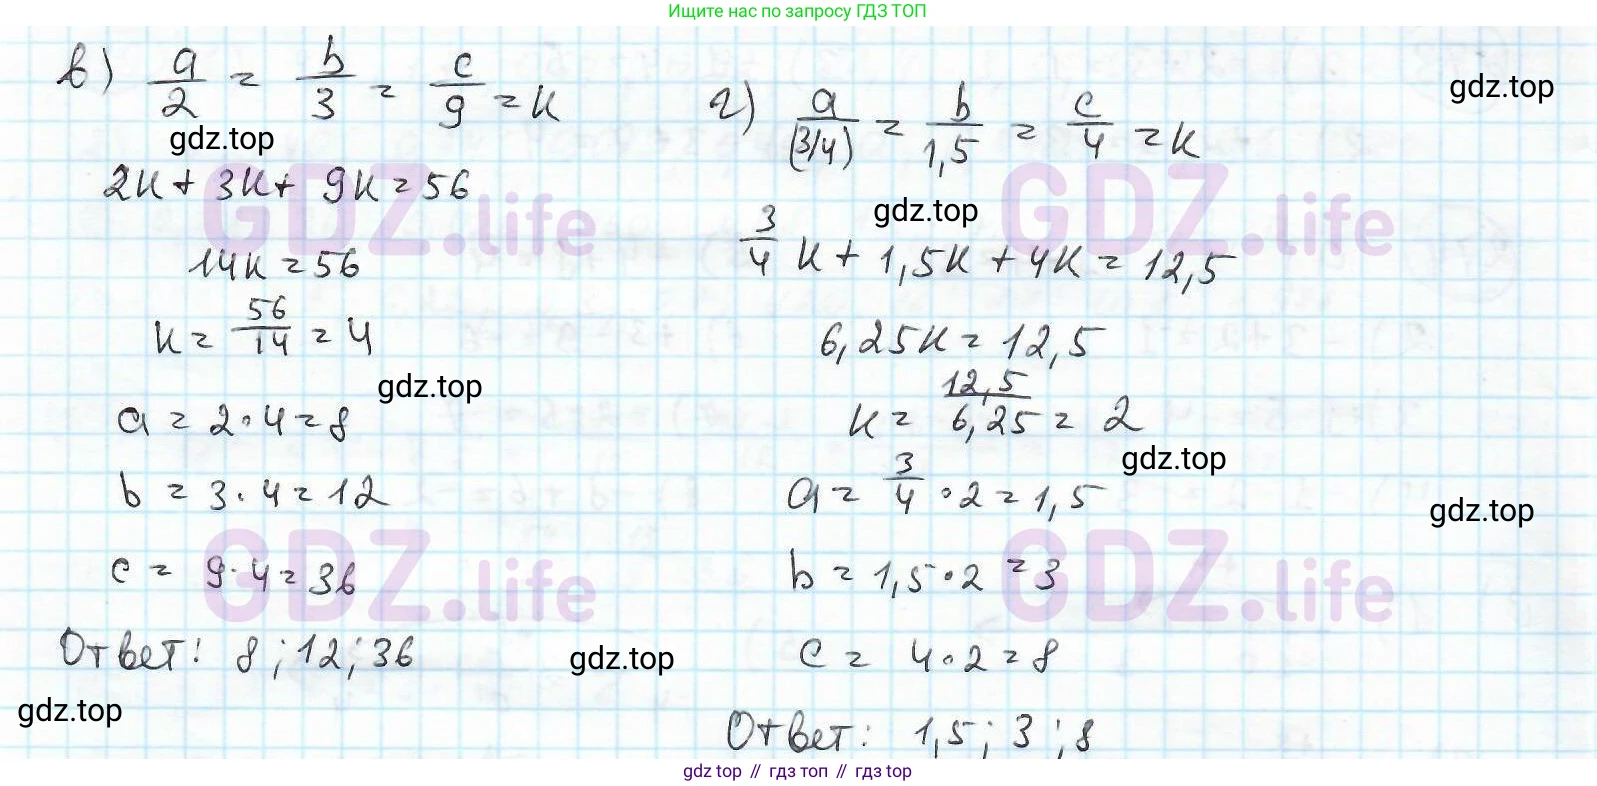 Ищите нас по запросу ГДЗ ТОП
в) a/2 = b/3 = c/9 = k
gdz.top
2k + 3k + 9k = 56
14k = 56
k = 56/14 = 4
gdz.top
a = 2·4 = 8
b = 3·4 = 12
c = 9·4 = 36
Ответ: 8; 12; 36
gdz.top
gdz.top
г) a/(3/4) = b/1,5 = c/4 = k
gdz.top
gdz.top
3/4 k + 1,5k + 4k = 12,5
6,25k = 12,5
k = 12,5/6,25 = 2
gdz.top
a = 3/4 · 2 = 1,5
gdz.top
b = 1,5·2 = 3
c = 4·2 = 8
Ответ: 1,5; 3; 8
GDZ.life
GDZ.life
GDZ.life
GDZ.life
gdz top // гдз топ // gdz.top